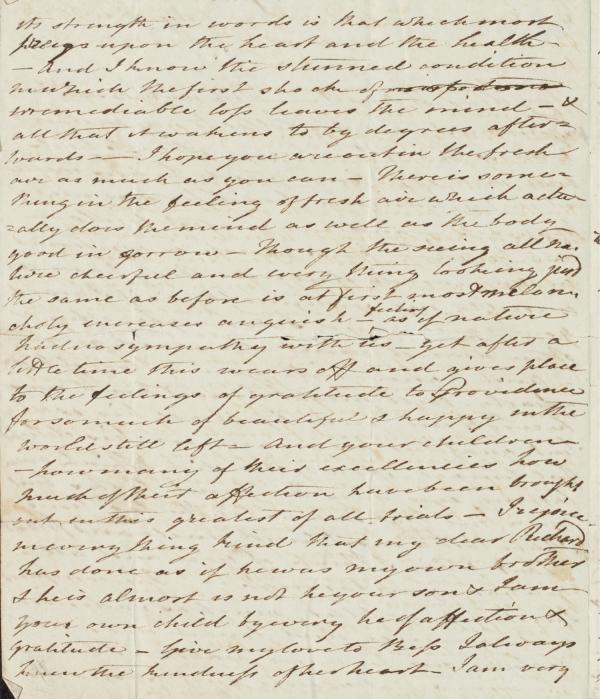 its strength in words is that which most
preys upon the heart and the health –
– and I know the stunned condition
in which the first shock of
irremediable loss leaves the mind – &
all that it wakens to by degrees after=
wards — I hope you are out in the fresh
air as much as you can – There is some=
thing in the feeling of fresh air which actu=
=ally does the mind as well as the body
good in sorrow – Though the seeing all na=
ture cheerful and every thing looking just
the same as before is at first most melan=
choly increases anguish – as if nature
had no sympathy with us – yet after a
little time this wears off and gives place
to the feelings of gratitude to Providence
for so much of beautiful & happy in the
world still left – And your children –
– how many of their excellencies how
much of their affection have been brought
out in this greatest of all trials – I rejoice
in every thing kind that my dear Richard
has done as if he was my own brother
& he is almost is not he your son & I am
your own child by every tie of affection &
gratitude – Give my love to Bess I always
knew the kindness of her heart – I am very